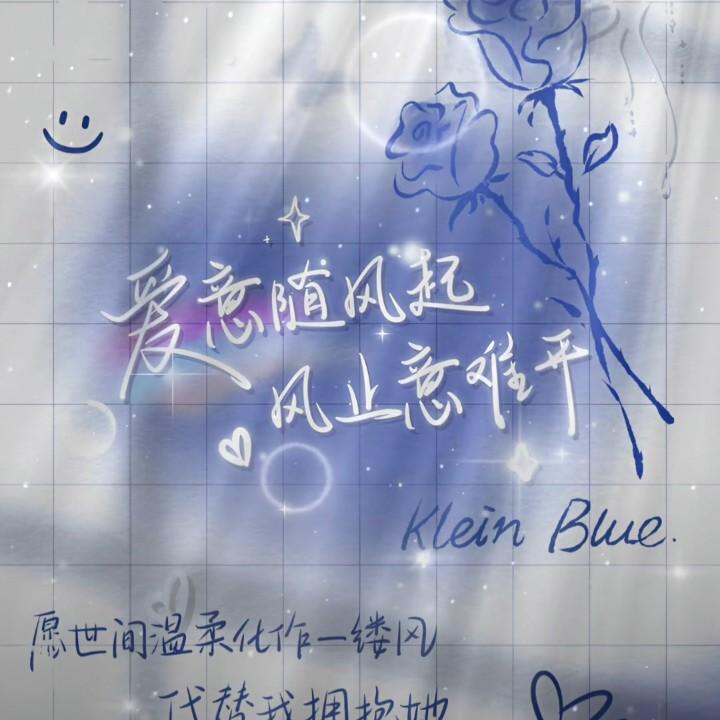 爱意随风起
风止意难平
Klein Blue.
愿世间温柔化作一缕风
代替我拥抱她